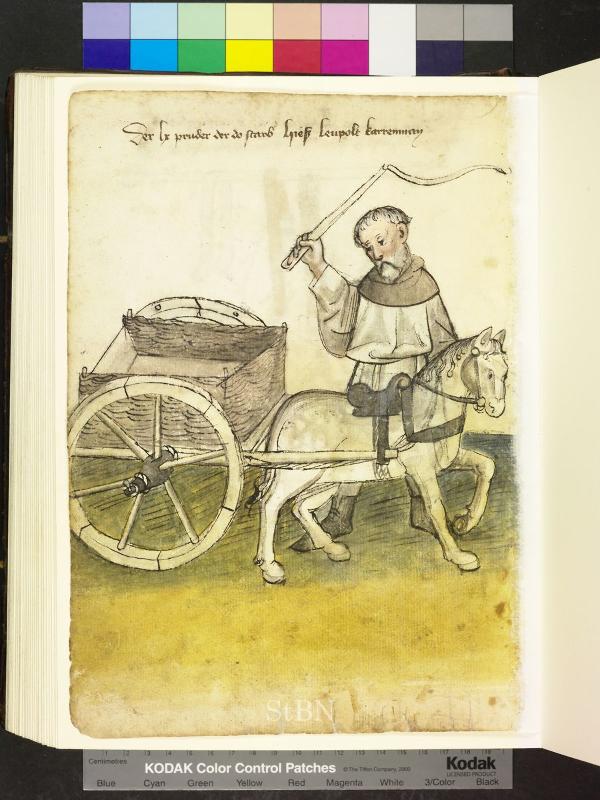 Der lx pruder der do starb hies leupolt karrenman
StBN
Centimetres
KODAK Color Control Patches © The Tiffen Company, 2000 Kodak
LICENSED PRODUCT
Blue Cyan Green Yellow Red Magenta White 3/Color Black